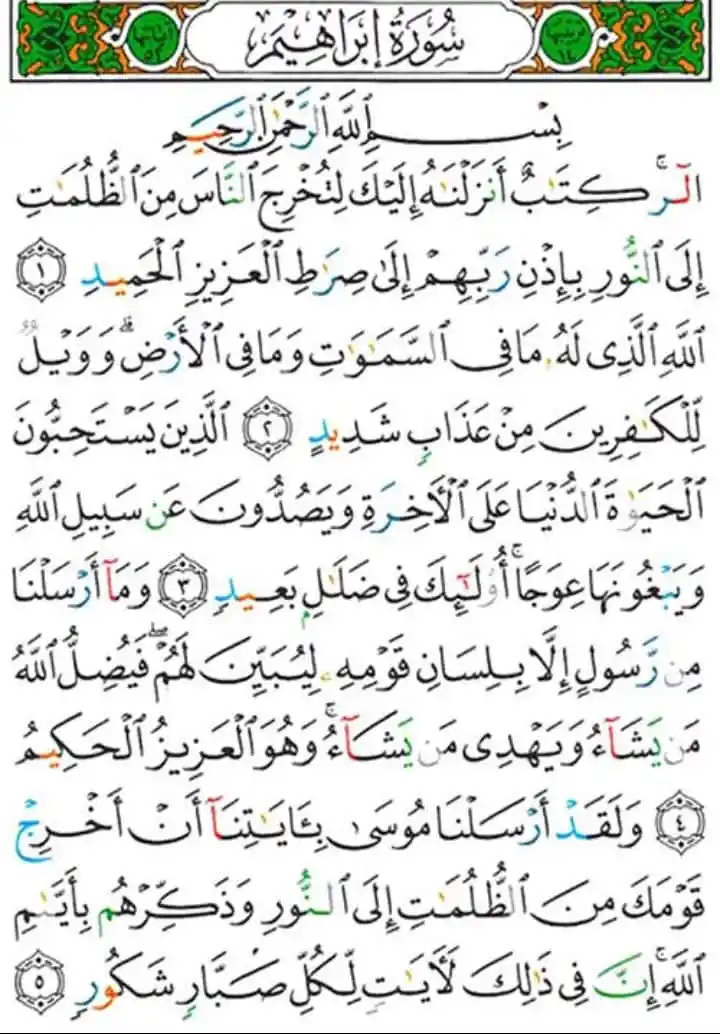 ترتيبها ١٤ سُورَةُ إِبْرَاهِيم آياتها ٥٢
بِسْمِ ٱللَّهِ ٱلرَّحْمَٰنِ ٱلرَّحِيمِ
الٓر ۚ كِتَٰبٌ أَنزَلْنَٰهُ إِلَيْكَ لِتُخْرِجَ ٱلنَّاسَ مِنَ ٱلظُّلُمَٰتِ
إِلَى ٱلنُّورِ بِإِذْنِ رَبِّهِمْ إِلَىٰ صِرَٰطِ ٱلْعَزِيزِ ٱلْحَمِيدِ ١
ٱللَّهِ ٱلَّذِى لَهُۥ مَا فِى ٱلسَّمَٰوَٰتِ وَمَا فِى ٱلْأَرْضِ ۗ وَوَيْلٌ
لِّلْكَٰفِرِينَ مِنْ عَذَابٍ شَدِيدٍ ٢ ٱلَّذِينَ يَسْتَحِبُّونَ
ٱلْحَيَوٰةَ ٱلدُّنْيَا عَلَى ٱلْأَخِرَةِ وَيَصُدُّونَ عَن سَبِيلِ ٱللَّهِ
وَيَبْغُونَهَا عِوَجًا ۚ أُو۟لَٰٓئِكَ فِى ضَلَٰلٍۭ بَعِيدٍ ٣ وَمَآ أَرْسَلْنَا
مِن رَّسُولٍ إِلَّا بِلِسَانِ قَوْمِهِۦ لِيُبَيِّنَ لَهُمْ ۖ فَيُضِلُّ ٱللَّهُ
مَن يَشَآءُ وَيَهْدِى مَن يَشَآءُ ۚ وَهُوَ ٱلْعَزِيزُ ٱلْحَكِيمُ
٤ وَلَقَدْ أَرْسَلْنَا مُوسَىٰ بِـَٔايَٰتِنَآ أَنْ أَخْرِجْ
قَوْمَكَ مِنَ ٱلظُّلُمَٰتِ إِلَى ٱلنُّورِ وَذَكِّرْهُم بِأَيَّىٰمِ
ٱللَّهِ ۚ إِنَّ فِى ذَٰلِكَ لَأَيَٰتٍ لِّكُلِّ صَبَّارٍ شَكُورٍ ٥